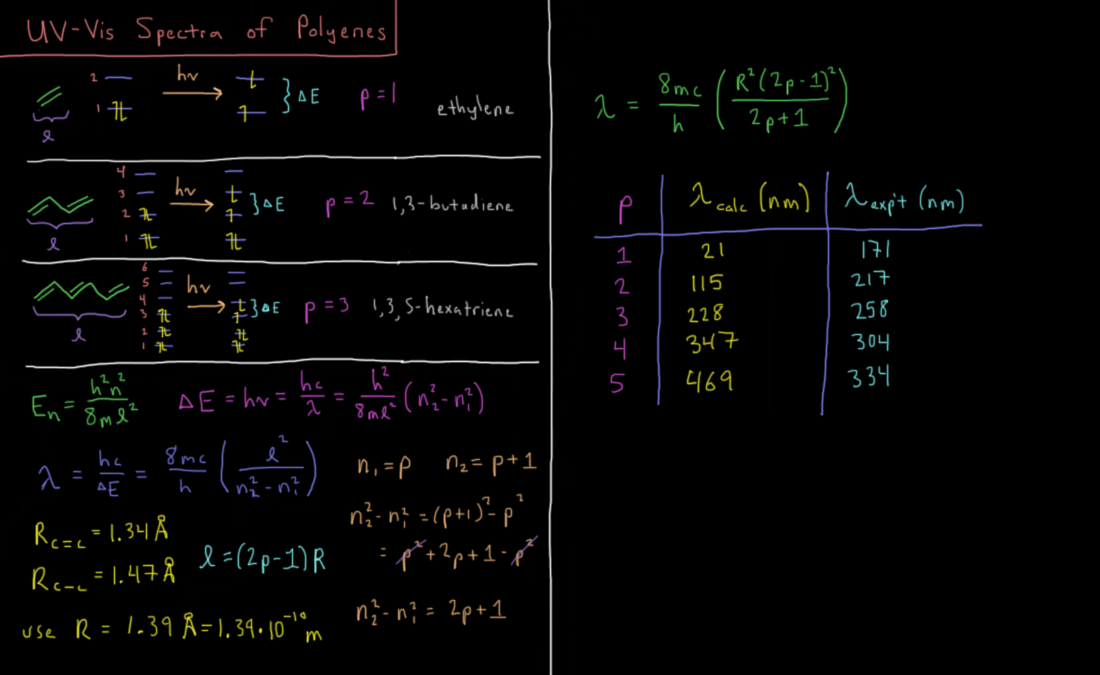 UV-Vis Spectra of Polyenes
2
1
hν
ΔE
p=1
ethylene
l
4
3
2
1
hν
ΔE
p=2
1,3-butadiene
l
6
5
4
3
2
1
hν
ΔE
p=3
1,3,5-hexatriene
l
Eₙ = h²n²/8ml²
ΔE = hν = hc/λ = h²/8ml² (n₂²-n₁²)
λ = hc/ΔE = 8mc/h (l²/n₂²-n₁²)
n₁=p n₂=p+1
n₂²-n₁² =(p+1)²-p²
= p²+2p+1-p²
n₂²-n₁² = 2p+1
R_C=C = 1.34Å
R_C-C = 1.47Å
l=(2p-1)R
use R = 1.39 Å=1.39·10⁻¹⁰ m
λ = 8mc/h (R²(2p-1)²/2p+1)
p λcalc (nm) λexp't (nm)
1 21 171
2 115 217
3 228 258
4 347 304
5 469 334